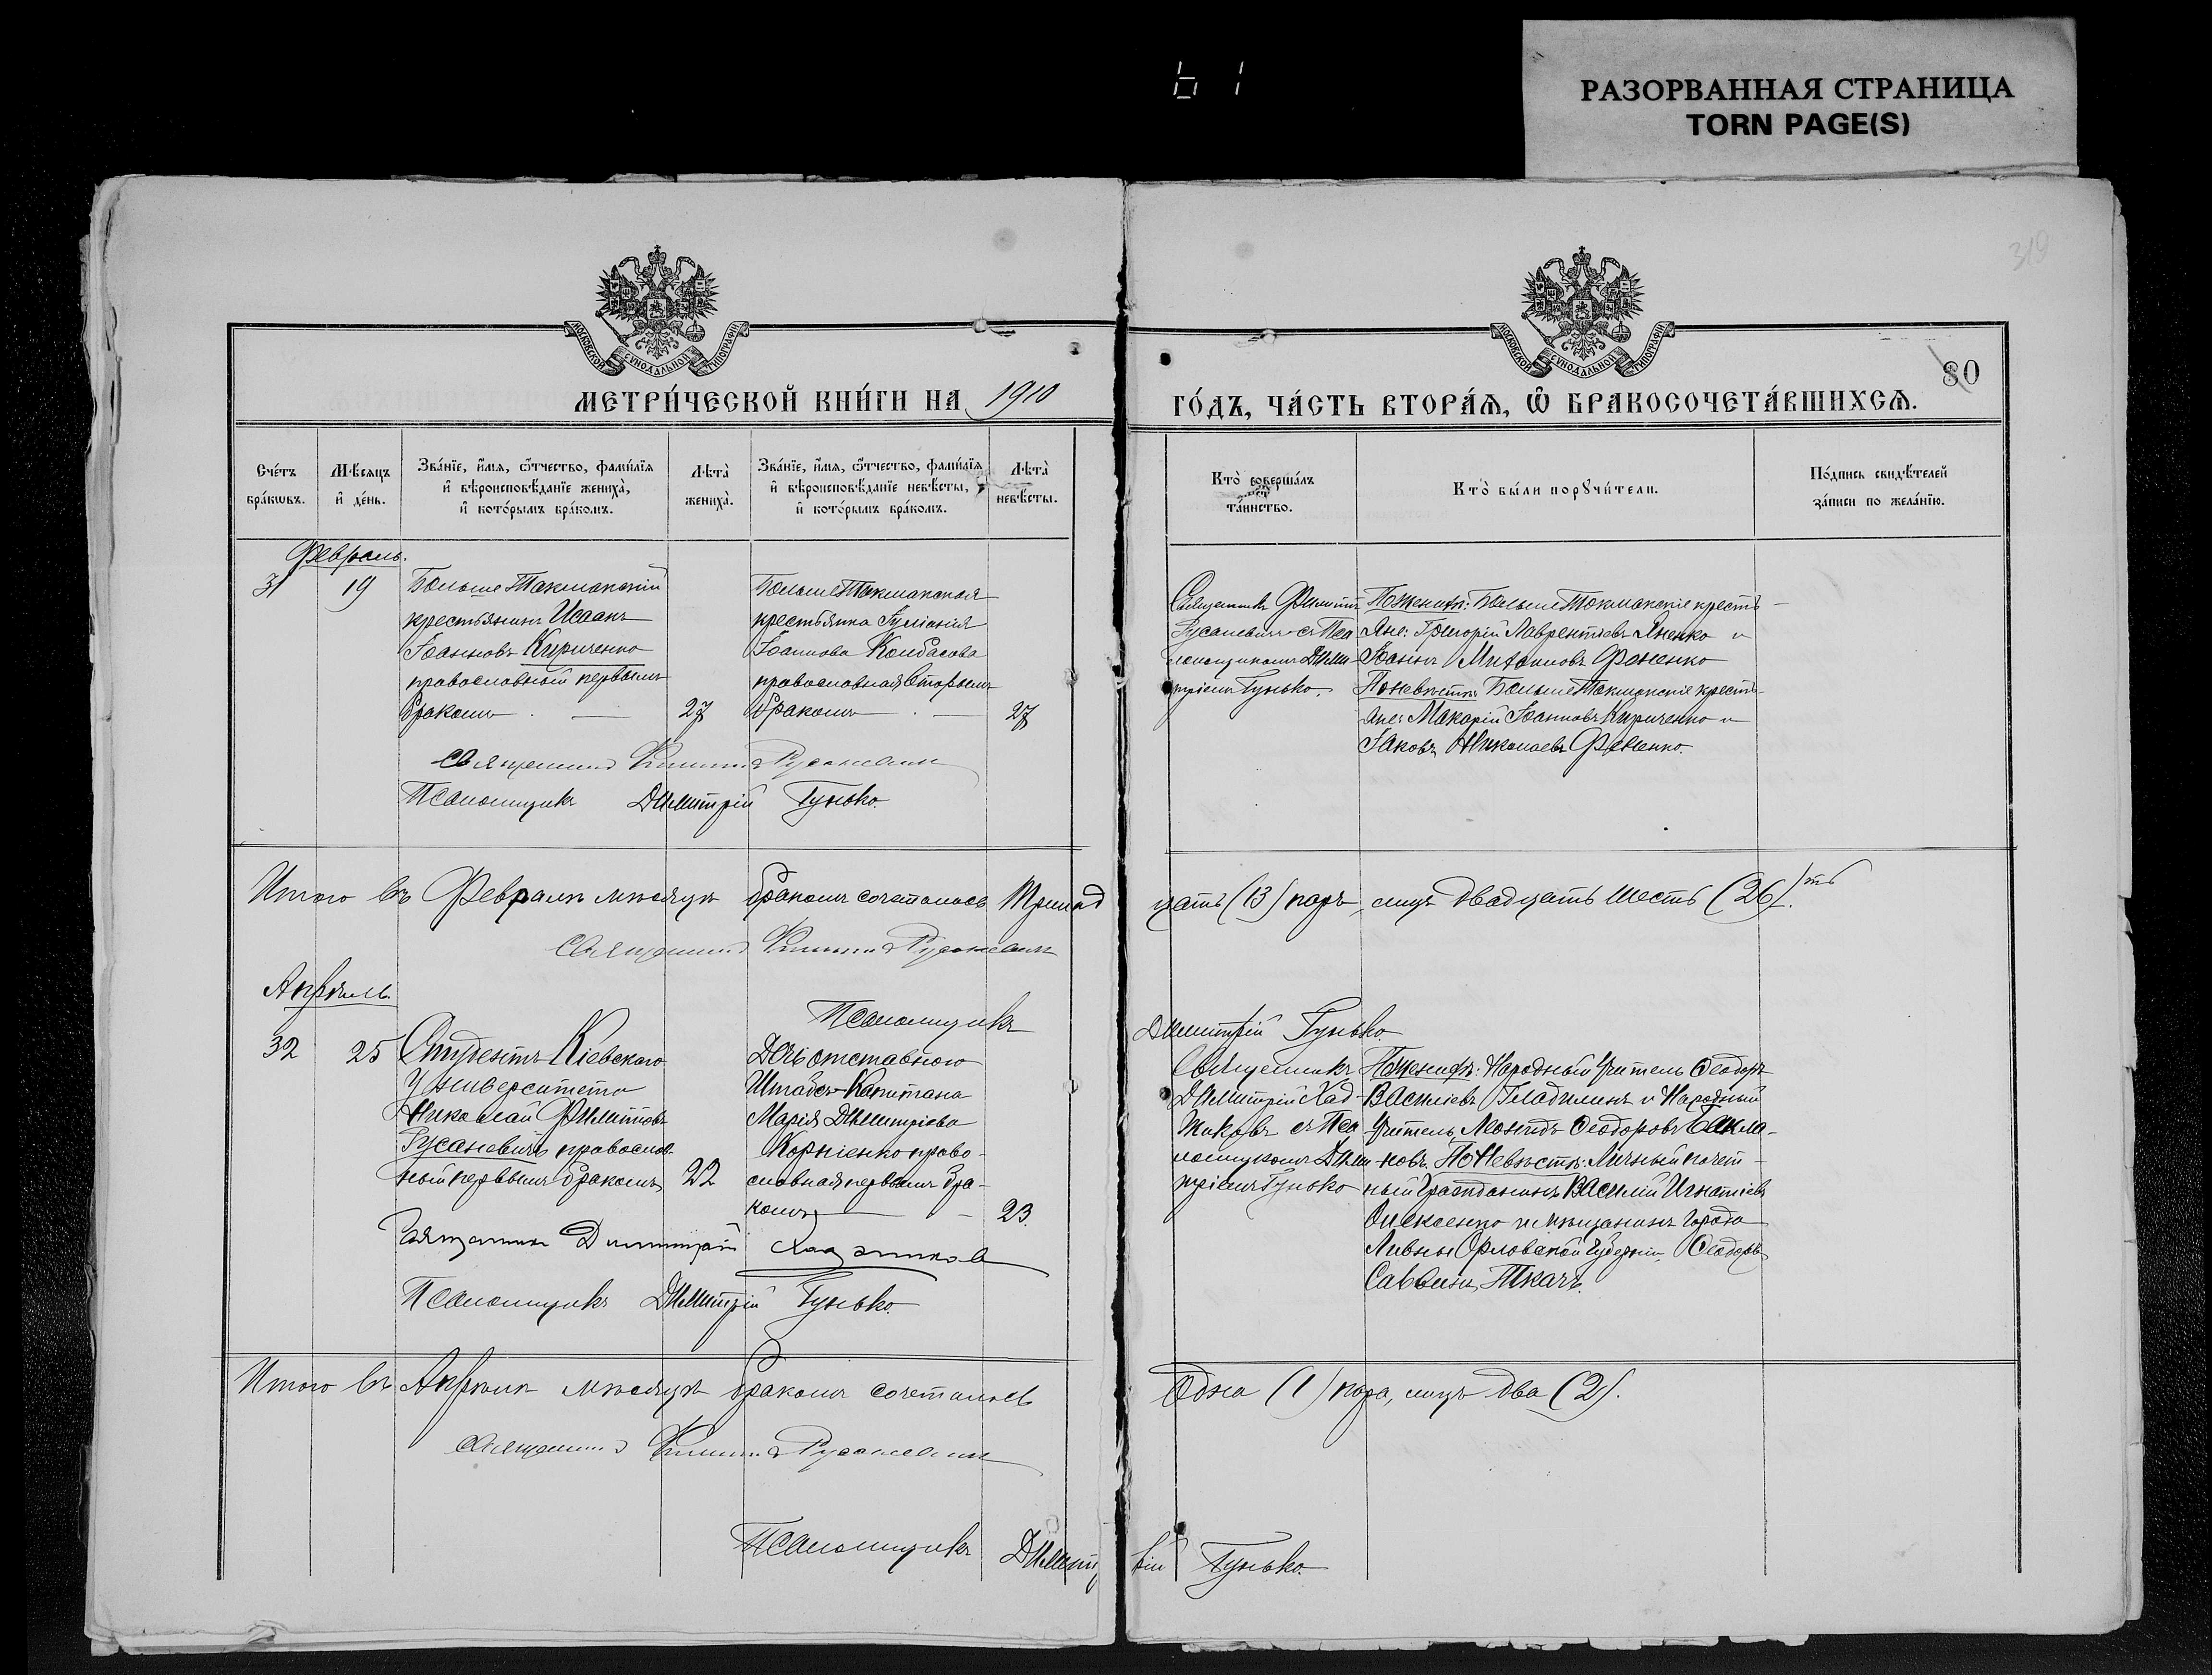 РАЗОРВАННАЯ СТРАНИЦА
TORN PAGE(S)
319
МОСКОВСКОЙ СѴНОДАЛЬНОЙ ТИПОГРАФІИ
МОСКОВСКОЙ СѴНОДАЛЬНОЙ ТИПОГРАФІИ
80
МЕТРИ́ЧЕСКОЙ КНИ́ГИ НА 1910
ГО́ДЪ, ЧА́СТЬ ВТОРА́Ѧ, Ѡ҆ БРАКОСОЧЕТА́ВШИХСѦ.
Сче́тъ
бра́кѡвъ.
Мѣ́сяцъ
и҆ де́нь.
Зва́нїе, и҆́мѧ, ѻ҆́тчество, фами́лїѧ
и҆ вѣроисповѣ́данїе жениха̀,
и҆ кото́рымъ бра́комъ.
Лѣта̀
жениха̀.
Зва́нїе, и҆́мѧ, ѻ҆́тчество, фами́лїѧ
и҆ вѣроисповѣ́данїе невѣ́сты,
и҆ кото́рымъ бра́комъ.
Лѣта̀
невѣ́сты.
Кто̀ соверша́лъ
та́инство.
Кто̀ бы́ли порꙋчи́тели.
По́дпись свидѣ́телей
за́писи по жела́нїю.
Февраль.
31 19
Больше Токмакскій
крестьянинъ Исаакъ
Іоанновъ Кириченко
православный первымъ
бракомъ 27
Больше Токмакская
крестьянка Іуліанія
Іоаннова Кондасова
православная вторымъ
бракомъ 27
Священникъ Филиппъ
Русаневичъ съ Пса
ломщикомъ Дими-
тріемъ Гунько.
По женихѣ: Больше Токмакскіе кресть-
яне: Григорій Лаврентіевъ Яненко и
Іоаннъ Митрофановъ Фоненко
По невѣстѣ: Больше Токмакскіе кресть-
яне: Макарій Іоанновъ Кириченко и
Іаковъ Николаевъ Фененко.
Священникъ Филиппъ Русаневичъ
Псаломщикъ Димитрій Гунько.
Итого въ Февралѣ мѣсяцѣ бракомъ сочеталось тринад
цать (13) паръ, лицъ двадцать шесть (26).
Священникъ Филиппъ Русаневичъ
Псаломщикъ
Димитрій Гунько.
Апрѣль.
32 25
Студентъ Кіевскаго
Университета
Николай Филипповъ
Русаневичъ православ-
ный первымъ бракомъ 22
Дочь отставного
Штабсъ-Капитана
Марія Димитріева
Корніенко право-
славная первымъ бра-
комъ 23.
Священникъ
Димитрій Хад-
жиковъ съ Пса
ломщикомъ Дими-
тріемъ Гунько
По женихѣ: Народный Учитель Ѳеодоръ
Василіевъ Гладилинъ и Народный
Учитель Леонидъ Ѳеодоровъ Бакла-
новъ. По невѣстѣ: Личный почет-
ный Гражданинъ Василій Игнатіевъ
Олексенко и мѣщанинъ города
Ливны Орловской губерніи, Ѳеодоръ
Саввинъ Ткачъ.
Священникъ Димитрій Хаджиковъ
Псаломщикъ Димитрій Гунько.
Итого въ Апрѣлѣ мѣсяцѣ бракомъ сочеталось
Одна (1) пара, лицъ два (2).
Священникъ Филиппъ Русаневичъ
Псаломщикъ Димит
рій Гунько.